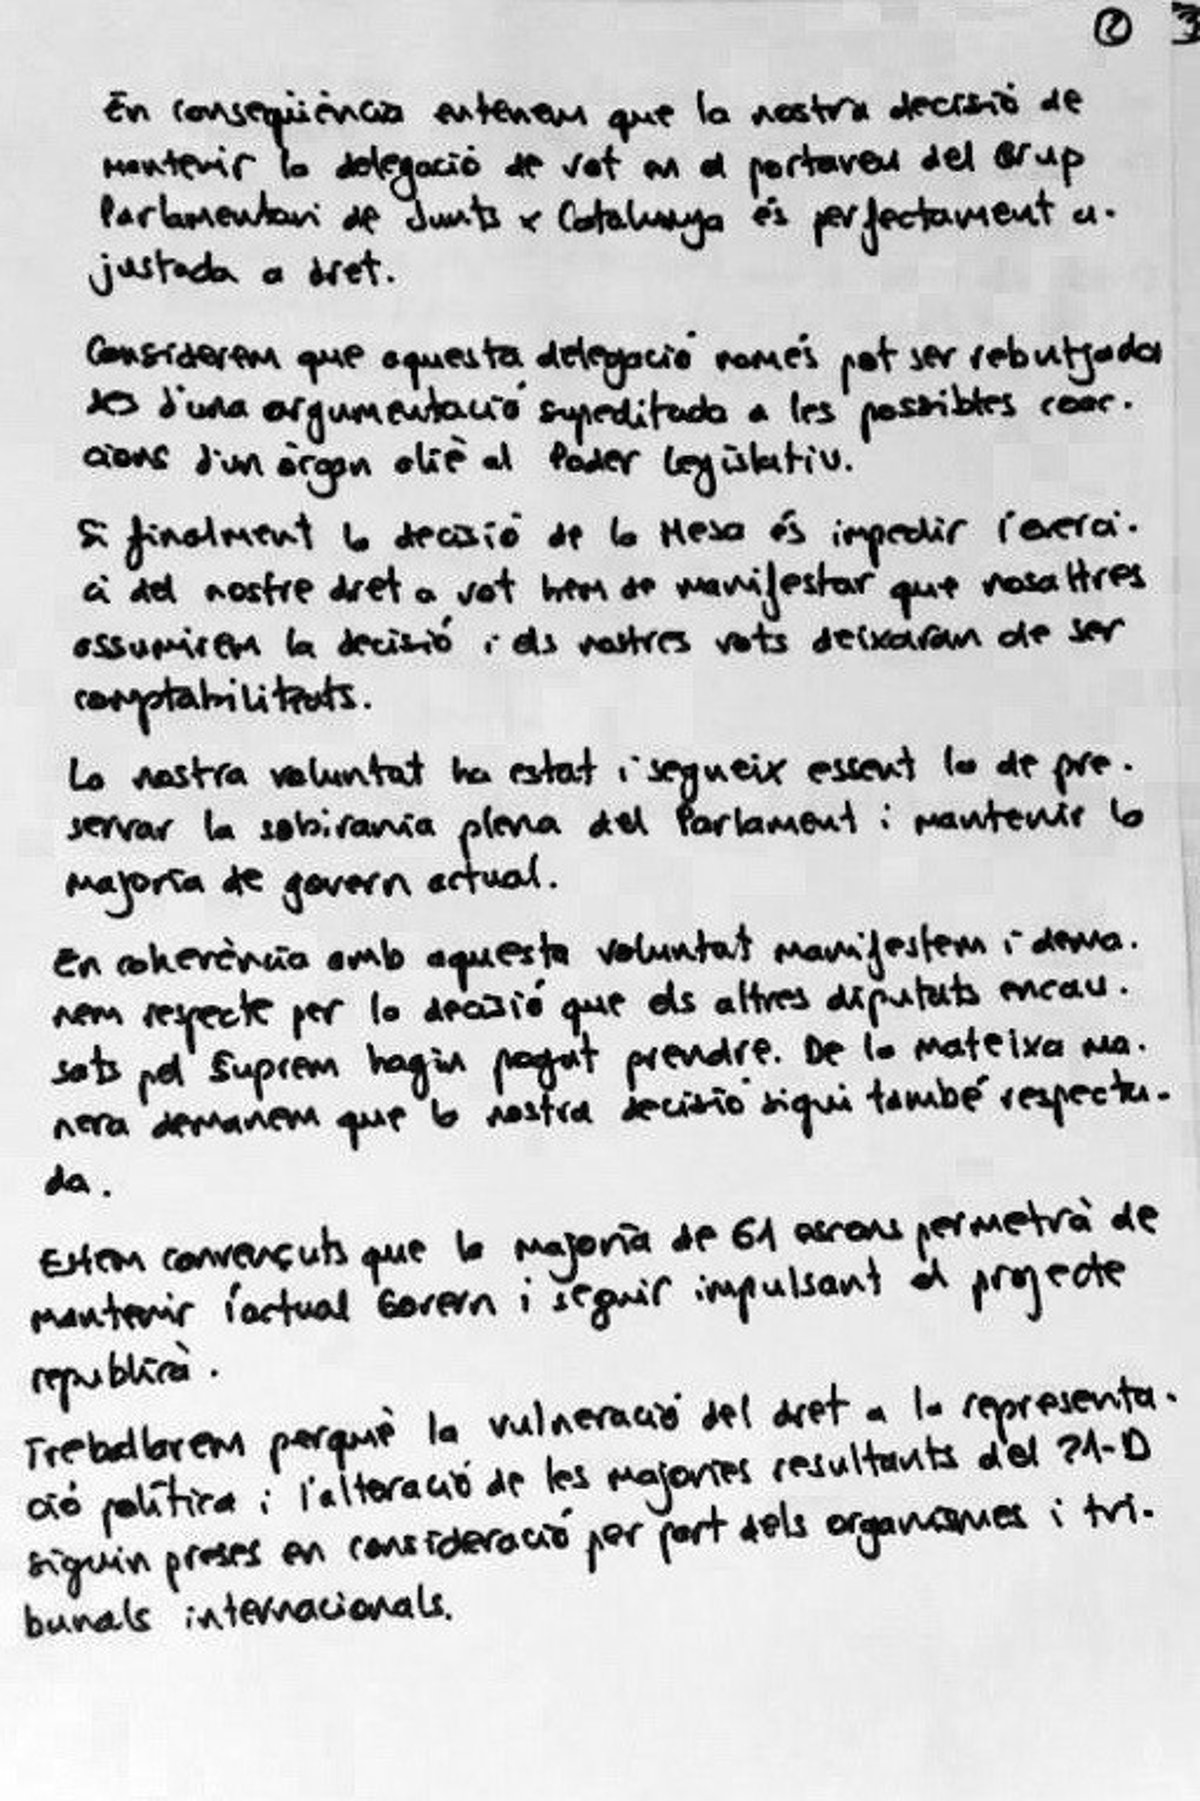 ② 3
En conseqüència entenem que la nostra decisió de
mantenir la delegació de vot en el portaveu del Grup
Parlamentari de Junts x Catalunya és perfectament a-
justada a dret.
Considerem que aquesta delegació només pot ser rebutjada
des d'una argumentació supeditada a les possibles coac-
cions d'un òrgan aliè al Poder Legislatiu.
Si finalment la decisió de la Mesa és impedir l'exerci-
ci del nostre dret a vot hem de manifestar que nosaltres
assumirem la decisió i els nostres vots deixaran de ser
comptabilitzats.
La nostra voluntat ha estat i segueix essent la de pre-
servar la sobirania plena del Parlament i mantenir la
majoria de govern actual.
En coherència amb aquesta voluntat manifestem i dema-
nem respecte per la decisió que els altres diputats encau-
sats pel Suprem hagin pogut prendre. De la mateixa ma-
nera demanem que la nostra decisió sigui també respecta-
da.
Estem convençuts que la majoria de 61 escons permetrà de
mantenir l'actual Govern i seguir impulsant el projecte
republicà.
Treballarem perquè la vulneració del dret a la representa-
ció política i l'alteració de les majories resultants del 21-D
siguin preses en consideració per part dels organismes i tri-
bunals internacionals.